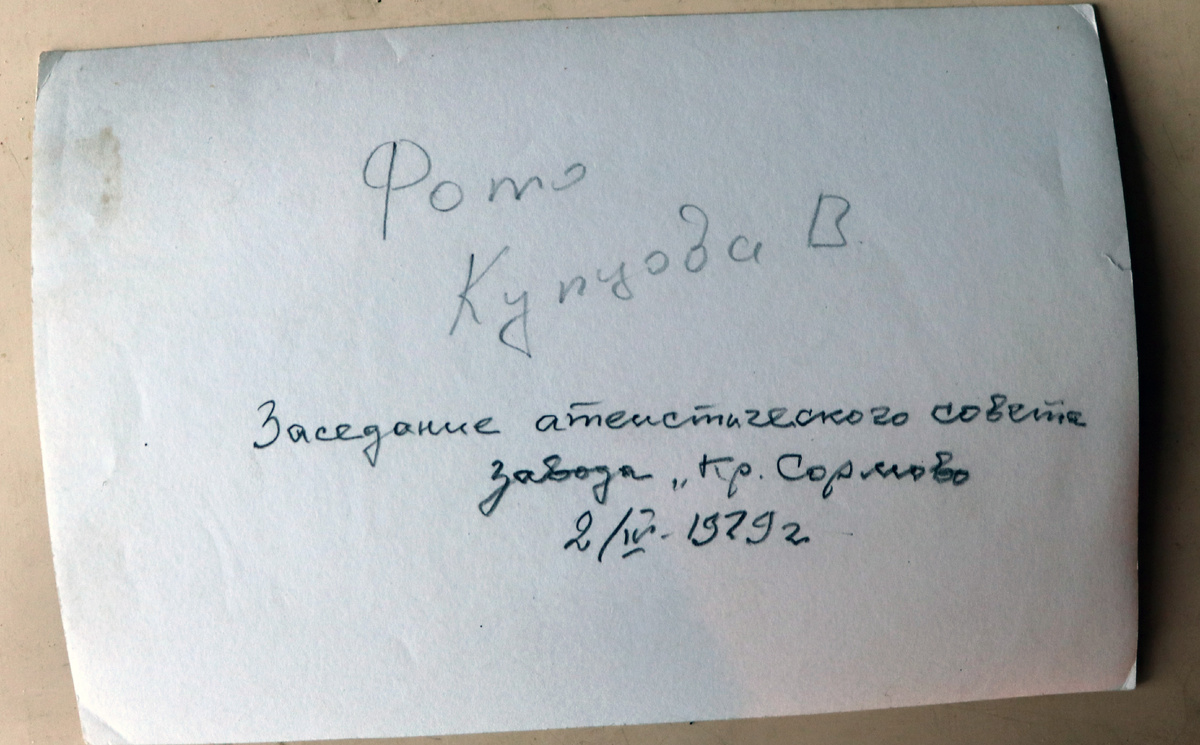 Фото
Купцова В.
Заседание атеистического совета
завода „Кр. Сормово
2/IV-1979 г